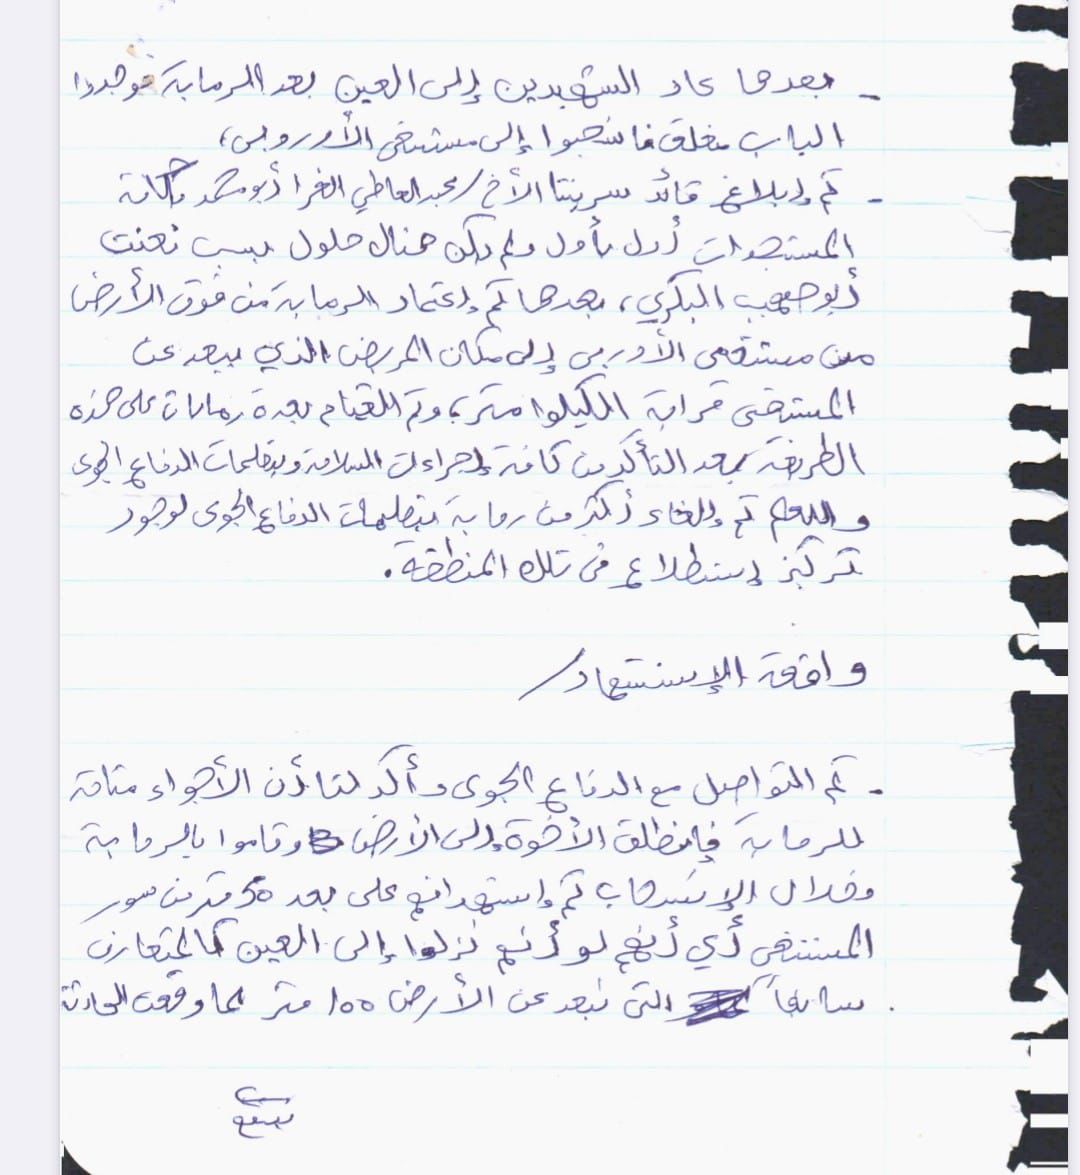 - بعدها عاد الشهيدين إلى العين بعد الرماية فوجدوا
الباب مغلق فانسحبوا إلى مستشفى الأوروبي،
- تم إبلاغ قائد سريتنا الأخ/عبد العاطي الفرا أبو محمد بكافة
المستجدات أول بأول ولم يكن هنال حلول بسبب تعنت
أبو صهيب البكري، بعدها تم إعتماد الرماية من فوق الأرض
من مستشفى الأوربي إلى مكان المربض الذي يبعد عن
المستشفى قرابة الكيلوا متر، وتم القيام بعدة رمايات على هذه
الطريقة بعد التأكد من كافة إجراءات السلامة وتعليمات الدفاع الجوي
تم إلغاء أكثر من رماية بتعليمات الدفاع الجوي لوجود
تركيز إستطلاع في تلك المنطقة.
واقعة الإستشهاد/
- تم التواصل مع الدفاع الجوي وأكد لنا أن الأجواء متاحة
للرماية فإنطلق الأخوة إلى الأرض وقاموا بالرماية
وخلال الإنسحاب تم إستهدافهم على بعد 50 متر من سور
المستشفى أي أنهم لو أنهم نزلوا إلى العين كالمتعارف
سابقاً التي تبعد عن الأرض 100 متر لما وقعت الحادثة
يتبع